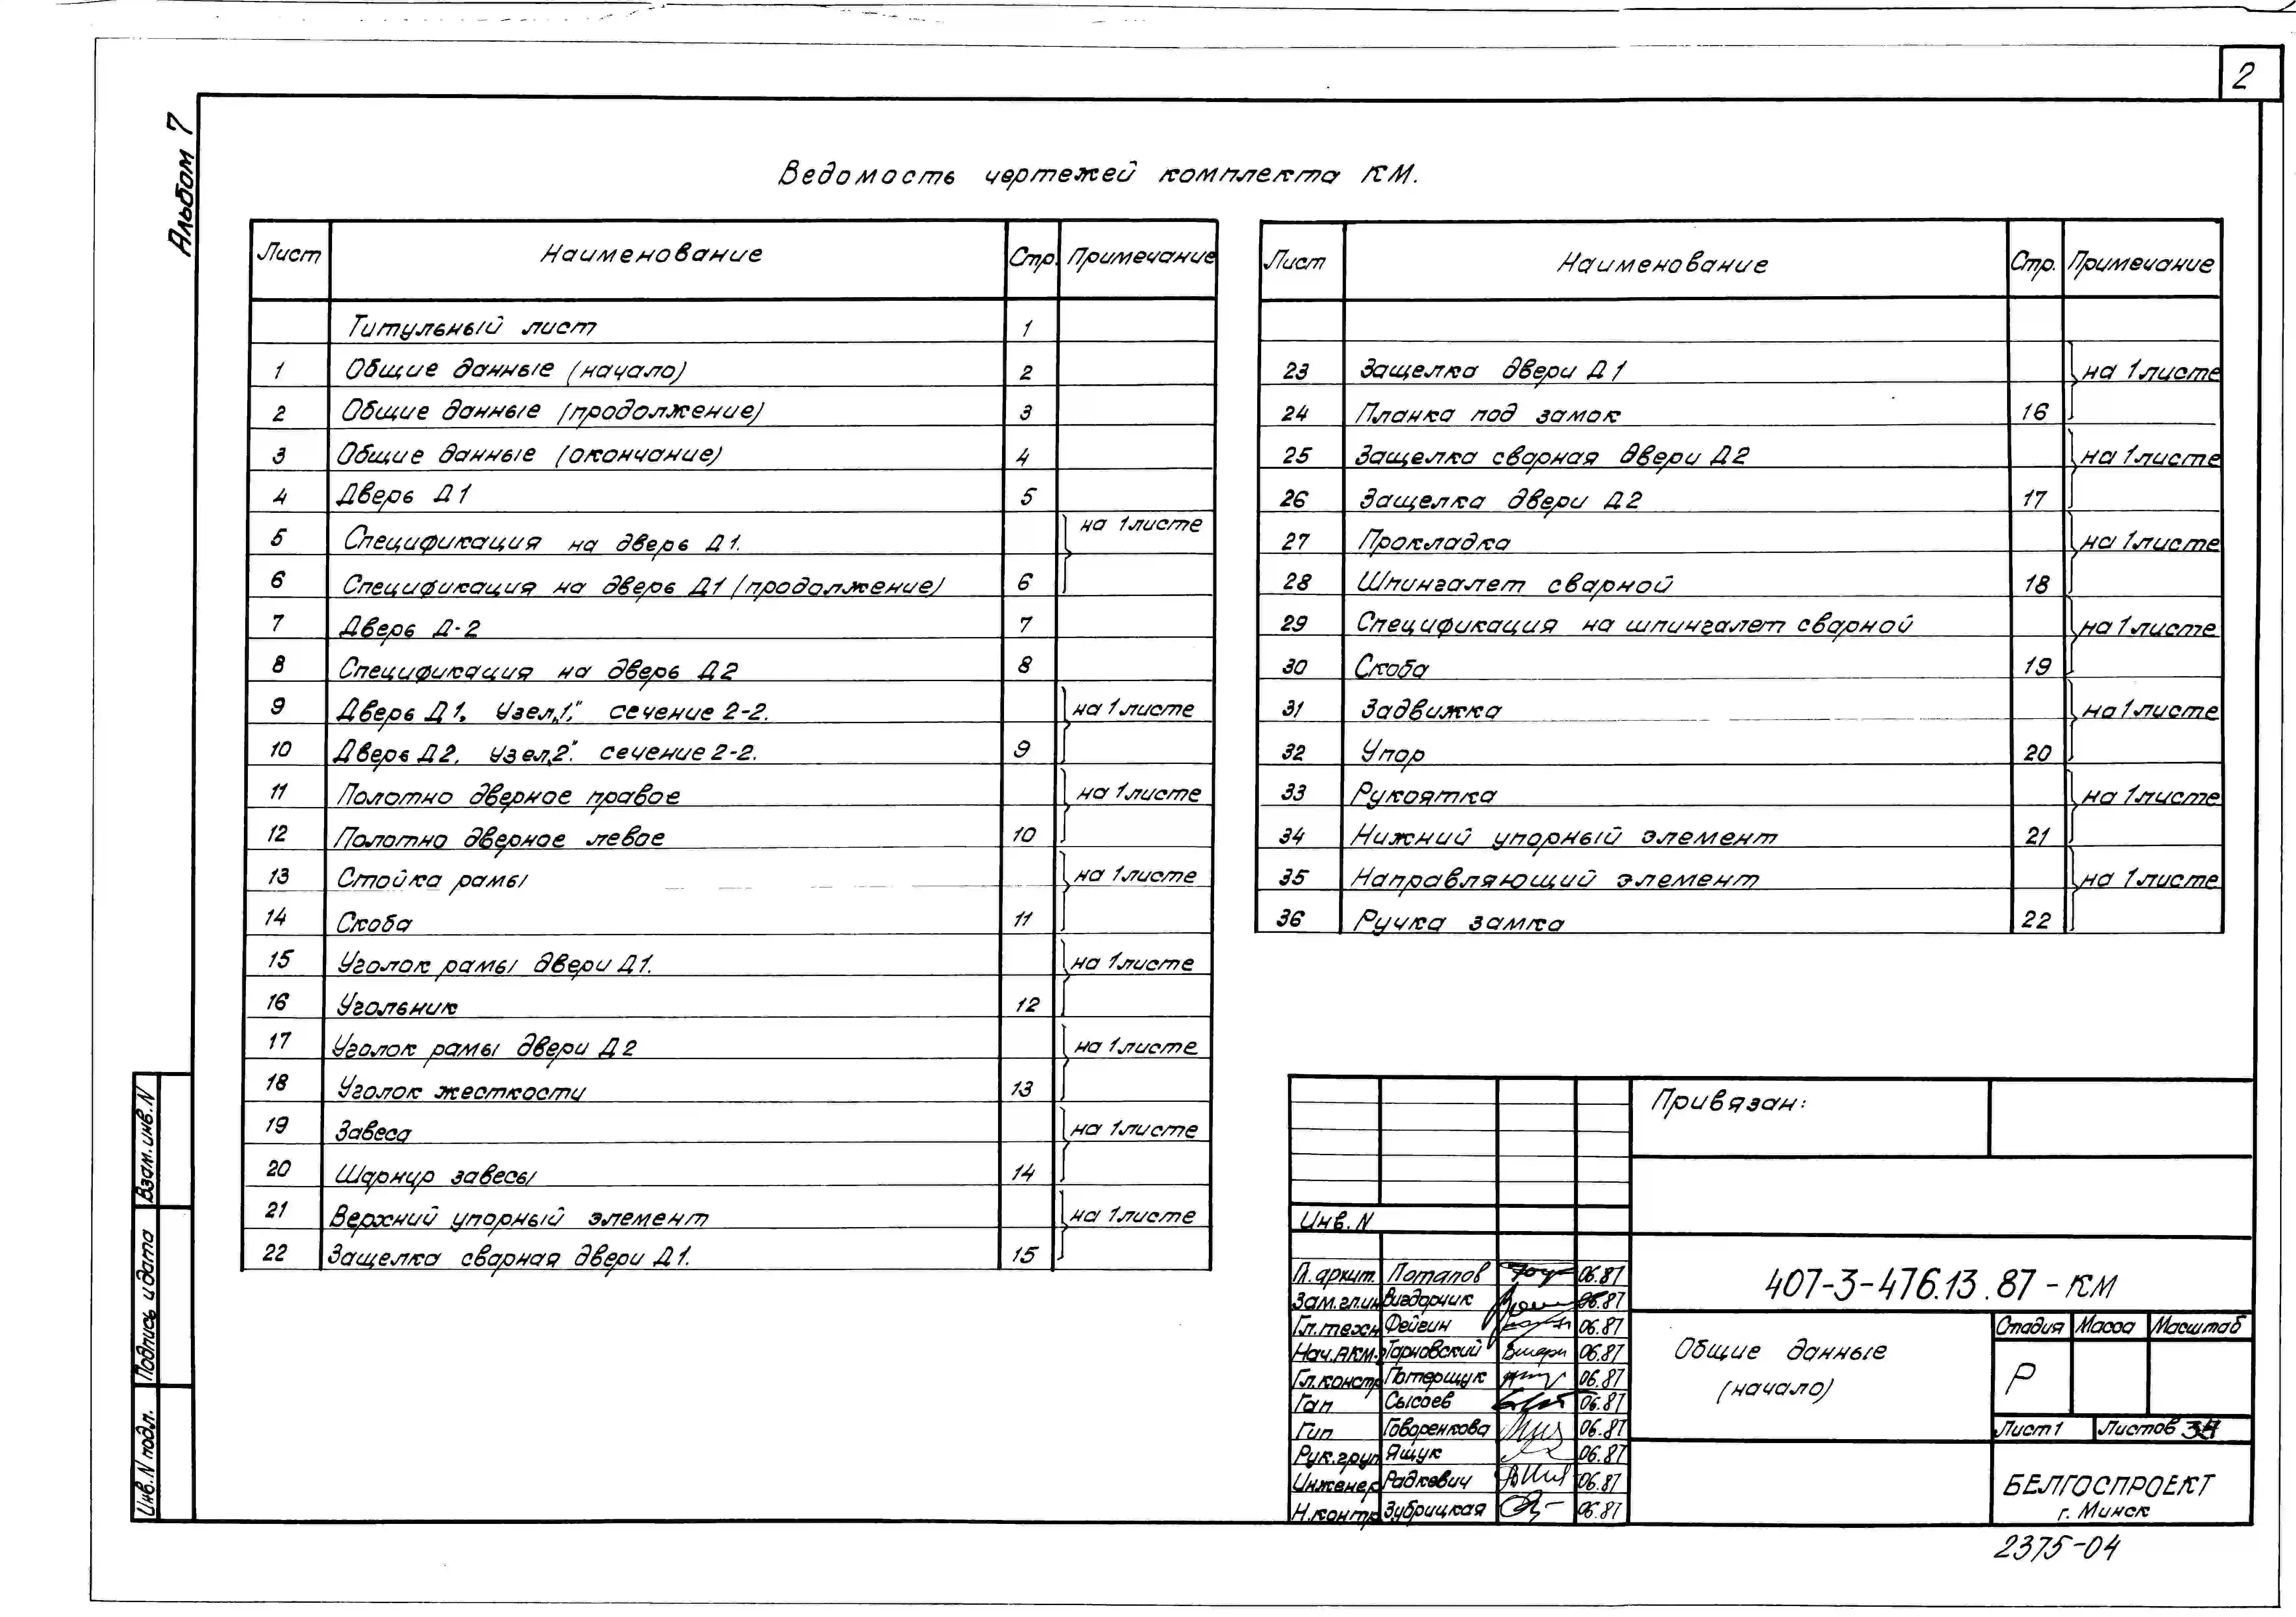 2
Альбом 7
Ведомость чертежей комплекта КМ.
Лист Наименование Стр. Примечание
Титульный лист 1
1 Общие данные (начало) 2
2 Общие данные (продолжение) 3
3 Общие данные (окончание) 4
4 Дверь Д1 5
5 Спецификация на дверь Д1. на 1листе
6 Спецификация на дверь Д1 (продолжение) 6
7 Дверь Д-2 7
8 Спецификация на дверь Д2 8
9 Дверь Д1. Узел„1," сечение 2-2. на 1листе
10 Дверь Д2. Узел„2". сечение 2-2. 9
11 Полотно дверное правое на 1листе
12 Полотно дверное левое 10
13 Стойка рамы на 1листе
14 Скоба 11
15 Уголок рамы двери Д1. на 1листе
16 Угольник 12
17 Уголок рамы двери Д2 на 1листе
18 Уголок жесткости 13
19 Завеса на 1листе
20 Шарнир завесы 14
21 Верхний упорный элемент на 1листе
22 Защелка сварная двери Д1. 15
Лист Наименование Стр. Примечание
23 Защелка двери Д1 на 1листе
24 Планка под замок 16
25 Защелка сварная двери Д2 на 1листе
26 Защелка двери Д2 17
27 Прокладка на 1листе
28 Шпингалет сварной 18
29 Спецификация на шпингалет сварной на 1листе
30 Скоба 19
31 Задвижка на 1листе
32 Упор 20
33 Рукоятка на 1листе
34 Нижний упорный элемент 21
35 Направляющий элемент на 1листе
36 Ручка замка 22
Привязан:
Инв.N
Гл.архит. Потапов 06.87
Зам.гл.ин Вигдорчик 06.87
Гл.техн Фейгин 06.87
Нач.АКМ. Тарновский 06.87
Гл.констр Потерщук 06.87
Гап Сысоев 06.87
Гип Говоренкова 06.87
Рук.груп Ящук 06.87
Инженер Радкевич 06.87
Н.контр Зубрицкая 06.87
407-3-476.13.87-КМ
Общие данные
(начало)
Стадия Масса Масштаб
Р
Лист 1 Листов
БЕЛГОСПРОЕКТ
г. Минск
2375-04
Взам.инв.N
Подпись и дата
Инв.N подл.